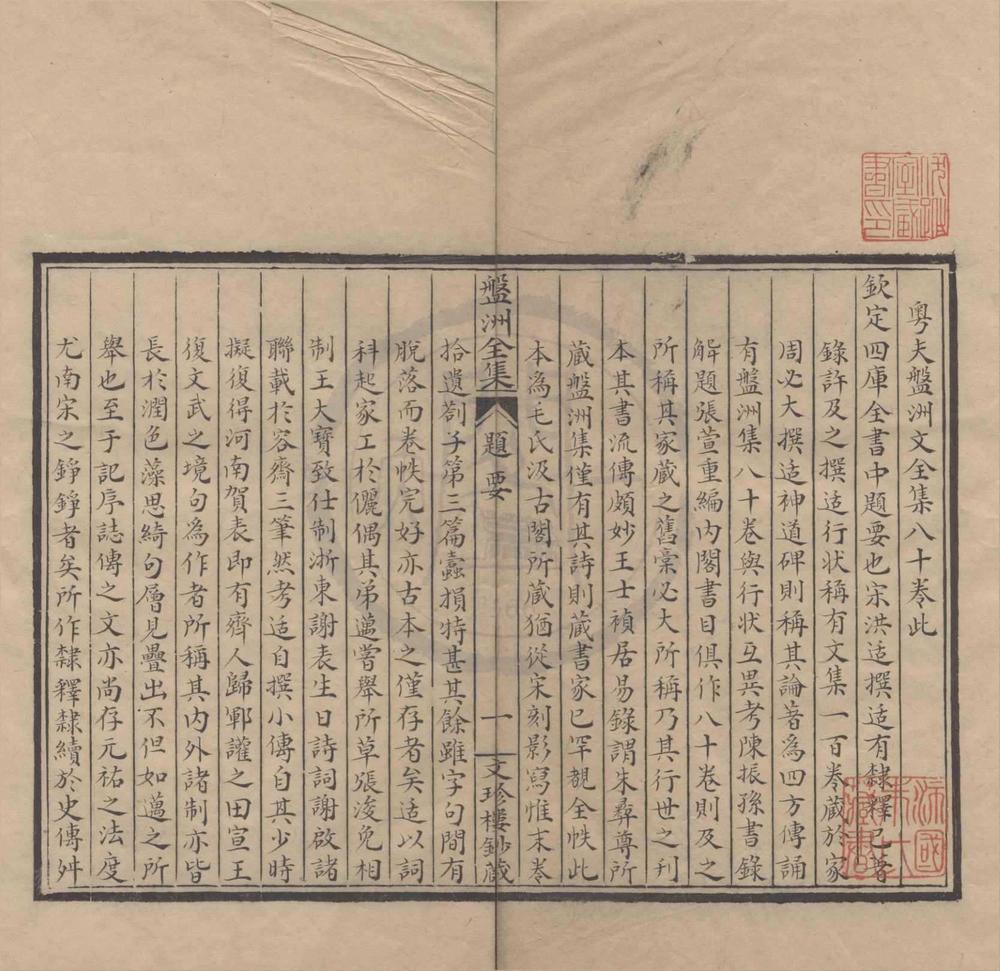 粤夫盤洲文全集八十卷此
欽定四庫全書中題要也宋洪适撰适有隸釋已著
錄許及之撰适行状稱有文集一百卷藏於家
周必大撰适神道碑則稱其論著為四方傳誦
有盤洲集八十卷與行状互異考陳振孫書錄
解題張萱重編內閣書目俱作八十卷則及之
所稱其家藏之舊稾必大所稱乃其行世之刊
本其書流傳頗妙王士禎居易錄謂朱彝尊所
藏盤洲集僅有其詩則藏書家已罕覩全帙此
本為毛氏汲古閣所藏猶從宋刻影寫惟末卷
盤洲全集 題要 一 文珍樓鈔藏
拾遺劄子第三篇蠹損特甚其餘雖字句間有
脫落而卷帙完好亦古本之僅存者矣适以詞
科起家工於儷偶其弟邁嘗舉所草張浚免相
制王大寶致仕制浙東謝表生日詩詞謝啟諸
聯載於容齋三筆然考适自撰小傳自其少時
擬復得河南賀表即有齊人歸鄆讙之田宣王
復文武之境句為作者所稱其內外諸制亦皆
長於潤色藻思綺句層見疊出不但如邁之所
舉也至于記序誌傳之文亦尚存元祐之法度
尤南宋之錚錚者矣所作隸釋隸續於史傳舛